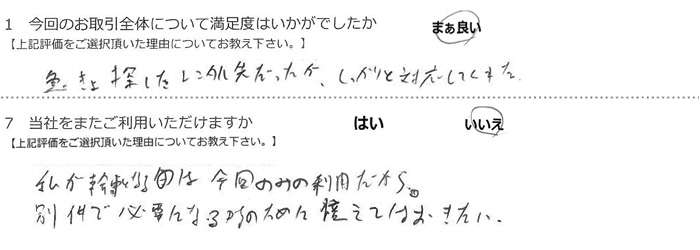 1 今回のお取引全体について満足度はいかがでしたか まぁ良い
【上記評価をご選択頂いた理由についてお教え下さい。】
急きょ探したレンタル先だったが、しっかりと対応してくれた。
7 当社をまたご利用いただけますか はい いいえ
【上記評価をご選択頂いた理由についてお教え下さい。】
私が幹事なる由は今回のみの利用だから。
別件で必要になる時のために憶えてはおきたい。